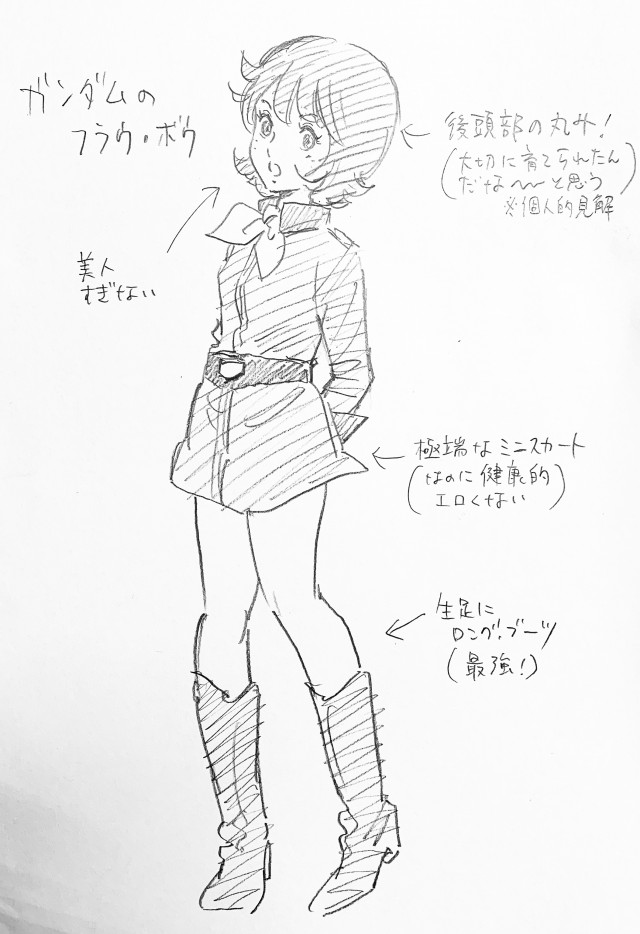 ガンダムの
フラウ・ボウ
後頭部の丸み!
(大切に育てられたん
だな〜〜と思う)
※個人的見解
美人
すぎない
極端なミニスカート
(なのに健康的
エロくない)
生足に
ロングブーツ
(最強!)